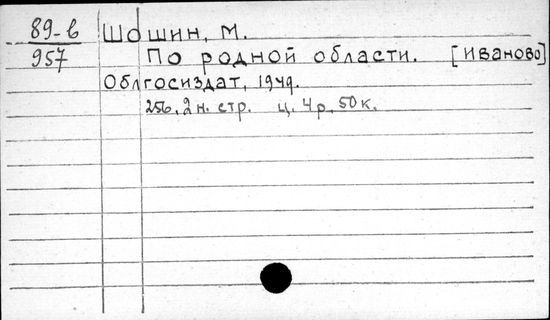 89-в
957
Шошин, М.
По родной области. [Иваново]
Облгосиздат, 1949.
256, 2 н. стр. ц. 4 р. 50 к.